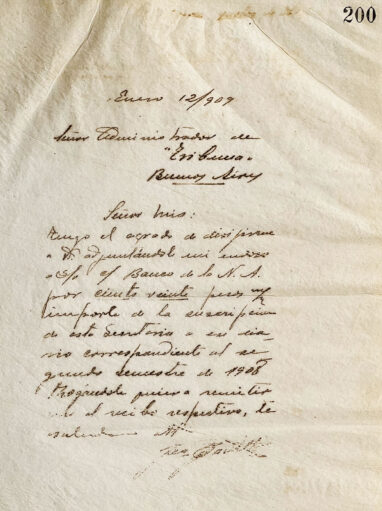 200
Enero 12/909
Señor Administrador de
"Tribuna"
Buenos Aires
Señor mio:
Tengo el agrado de dirigirme
a Vd adjuntándole mi
c/ Banco de la N. A.
por ciento veinte pesos m/n
importe de la suscripcion
de esta Secretaria a su dia-
rio correspondiente al se-
gundo semestre de 1908
Rogándole quiera remitir
me el recibo respectivo, le
saluda att